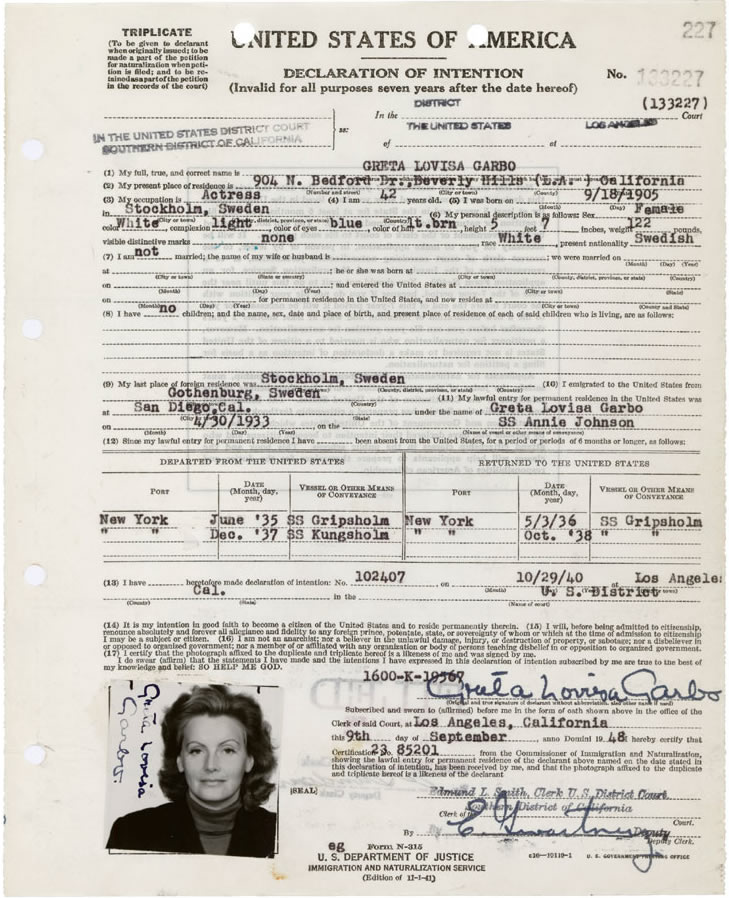 TRIPLICATE
(To be given to declarant
when originally issued; to be
made a part of the petition
for naturalization when peti-
tion is filed; and to be re-
tained as a part of the petition
in the records of the court)
227
UNITED STATES OF AMERICA
DECLARATION OF INTENTION
(Invalid for all purposes seven years after the date hereof)
No. 133227
(133227)
IN THE UNITED STATES DISTRICT COURT
SOUTHERN DISTRICT OF CALIFORNIA
ss:
In the DISTRICT Court
of THE UNITED STATES at LOS ANGELES
(1) My full, true, and correct name is GRETA LOVISA GARBO
(2) My present place of residence is 904 N. Bedford Dr., Beverly Hills (L.A.) California
(Number and street) (City or town) (County) (State)
(3) My occupation is Actress (4) I am 42 years old. (5) I was born on 9/18/1905
(Month) (Day) (Year)
in Stockholm, Sweden (6) My personal description is as follows: Sex Female
(City or town) (County, district, province, or state) (Country)
color White complexion light, color of eyes blue, color of hair lt.brn, height 5 feet 7 inches, weight 122 pounds,
visible distinctive marks none race White, present nationality Swedish
(7) I am not married; the name of my wife or husband is we were married on
(Month) (Day) (Year)
at ; he or she was born at
(City or town) (State or country) (City or town) (County, district, province, or state) (Country)
on ; and entered the United States at
(Month) (Day) (Year) (City or town) (State)
on for permanent residence in the United States, and now resides at
(Month) (Day) (Year) (City or town) (County and State)
(8) I have no children; and the name, sex, date and place of birth, and present place of residence of each of said children who is living, are as follows:
(9) My last place of foreign residence was Stockholm, Sweden (10) I emigrated to the United States from
(City or town) (County, district, province, or state) (Country)
Gothenburg, Sweden (11) My lawful entry for permanent residence in the United States was
(Country)
at San Diego, Cal. under the name of Greta Lovisa Garbo
(City or town) (State)
on 4/30/1933 on the SS Annie Johnson
(Month) (Day) (Year) (Name of vessel or other means of conveyance)
(12) Since my lawful entry for permanent residence I have been absent from the United States, for a period or periods of 6 months or longer, as follows:
DEPARTED FROM THE UNITED STATES RETURNED TO THE UNITED STATES
PORT DATE (Month, day, year) VESSEL OR OTHER MEANS OF CONVEYANCE PORT DATE (Month, day, year) VESSEL OR OTHER MEANS OF CONVEYANCE
New York June '35 SS Gripsholm New York 5/3/36 SS Gripsholm
" " Dec. '37 SS Kungsholm " " Oct. '38
(13) I have heretofore made declaration of intention: No. 102407, on 10/29/40 at Los Angele
(Month) (Day) (Year) (City or town)
Cal. in the U. S. District
(County) (State) (Name of court)
(14) It is my intention in good faith to become a citizen of the United States and to reside permanently therein. (15) I will, before being admitted to citizenship,
renounce absolutely and forever all allegiance and fidelity to any foreign prince, potentate, state, or sovereignty of whom or which at the time of admission to citizenship
I may be a subject or citizen. (16) I am not an anarchist; nor a believer in the unlawful damage, injury, or destruction of property, or sabotage; nor a disbeliever in
or opposed to organized government; nor a member of or affiliated with any organization or body of persons teaching disbelief in or opposition to organized government.
(17) I certify that the photograph affixed to the duplicate and triplicate hereof is a likeness of me and was signed by me.
I do swear (affirm) that the statements I have made and the intentions I have expressed in this declaration of intention subscribed by me are true to the best of
my knowledge and belief: SO HELP ME GOD.
1600-K-19567
Greta Lovisa Garbo
(Original and true signature of declarant without abbreviation, also other name if used)
Subscribed and sworn to (affirmed) before me in the form of oath shown above in the office of the
Clerk of said Court, at Los Angeles, California
this 9th day of September, anno Domini 19 48; hereby certify that
Certification 23 85201 from the Commissioner of Immigration and Naturalization,
showing the lawful entry for permanent residence of the declarant above named on the date stated in
this declaration of intention, has been received by me, and that the photograph affixed to the duplicate
and triplicate hereof is a likeness of the declarant
Greta Lovisa
Garbo
[SEAL]
Edmund L. Smith, Clerk U.S. District Court,
Southern District of California
Clerk of the Court.
By Deputy
Deputy Clerk.
eg Form N-315
U. S. DEPARTMENT OF JUSTICE
IMMIGRATION AND NATURALIZATION SERVICE
(Edition of 11-1-41)
c16—19119-1 U. S. GOVERNMENT PRINTING OFFICE